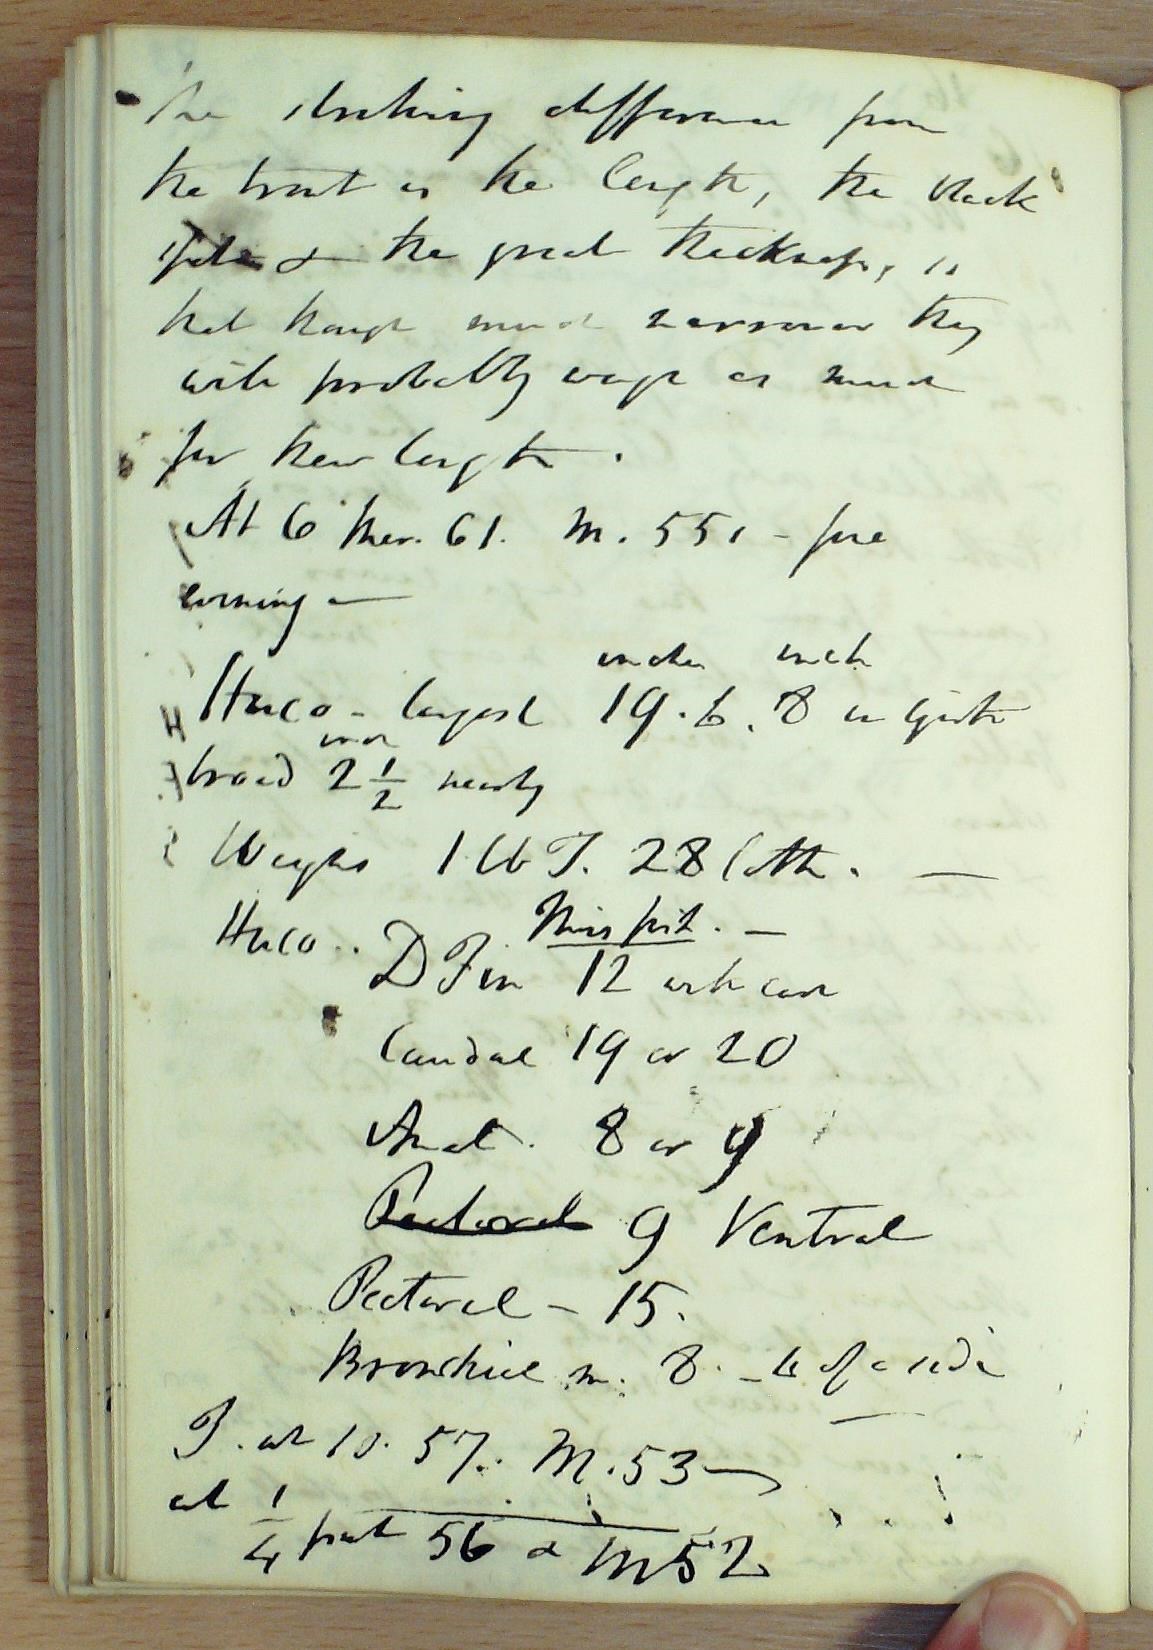 The striking difference from
the trout is the length, the black
spots & the great thickness, is
that though much narrower they
will probably weigh as much
for their length.
At 6 ther. 61. M. 55, - fine
evening —
inches inch
Huco - largest 19.6. 8 in girth
inch
broad 2 1/2 nearly
Weighs 1 lb T. 28 loth. —
This fish. —
Huco.. D Fin 12 with care
Caudal 19 or 20
Anal. 8 or 9
Pectoral 9 Ventral
Pectoral - 15.
Bronchiae m. 8. - of a side
T. at 10. 57. M. 53
at 1/4 past 56 & M 52